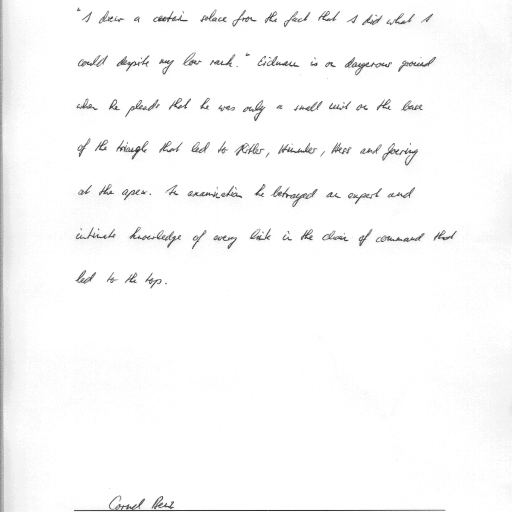 "I drew a certain solace from the fact that I did what I
could despite my low rank." Eichmann is on dangerous ground
when he pleads that he was only a small unit on the base
of the triangle that led to Hitler, Himmler, Hess and Goering
at the apex. In examination he betrayed an expert and
intimate knowledge of every link in the chain of command that
led to the top.
Cornel